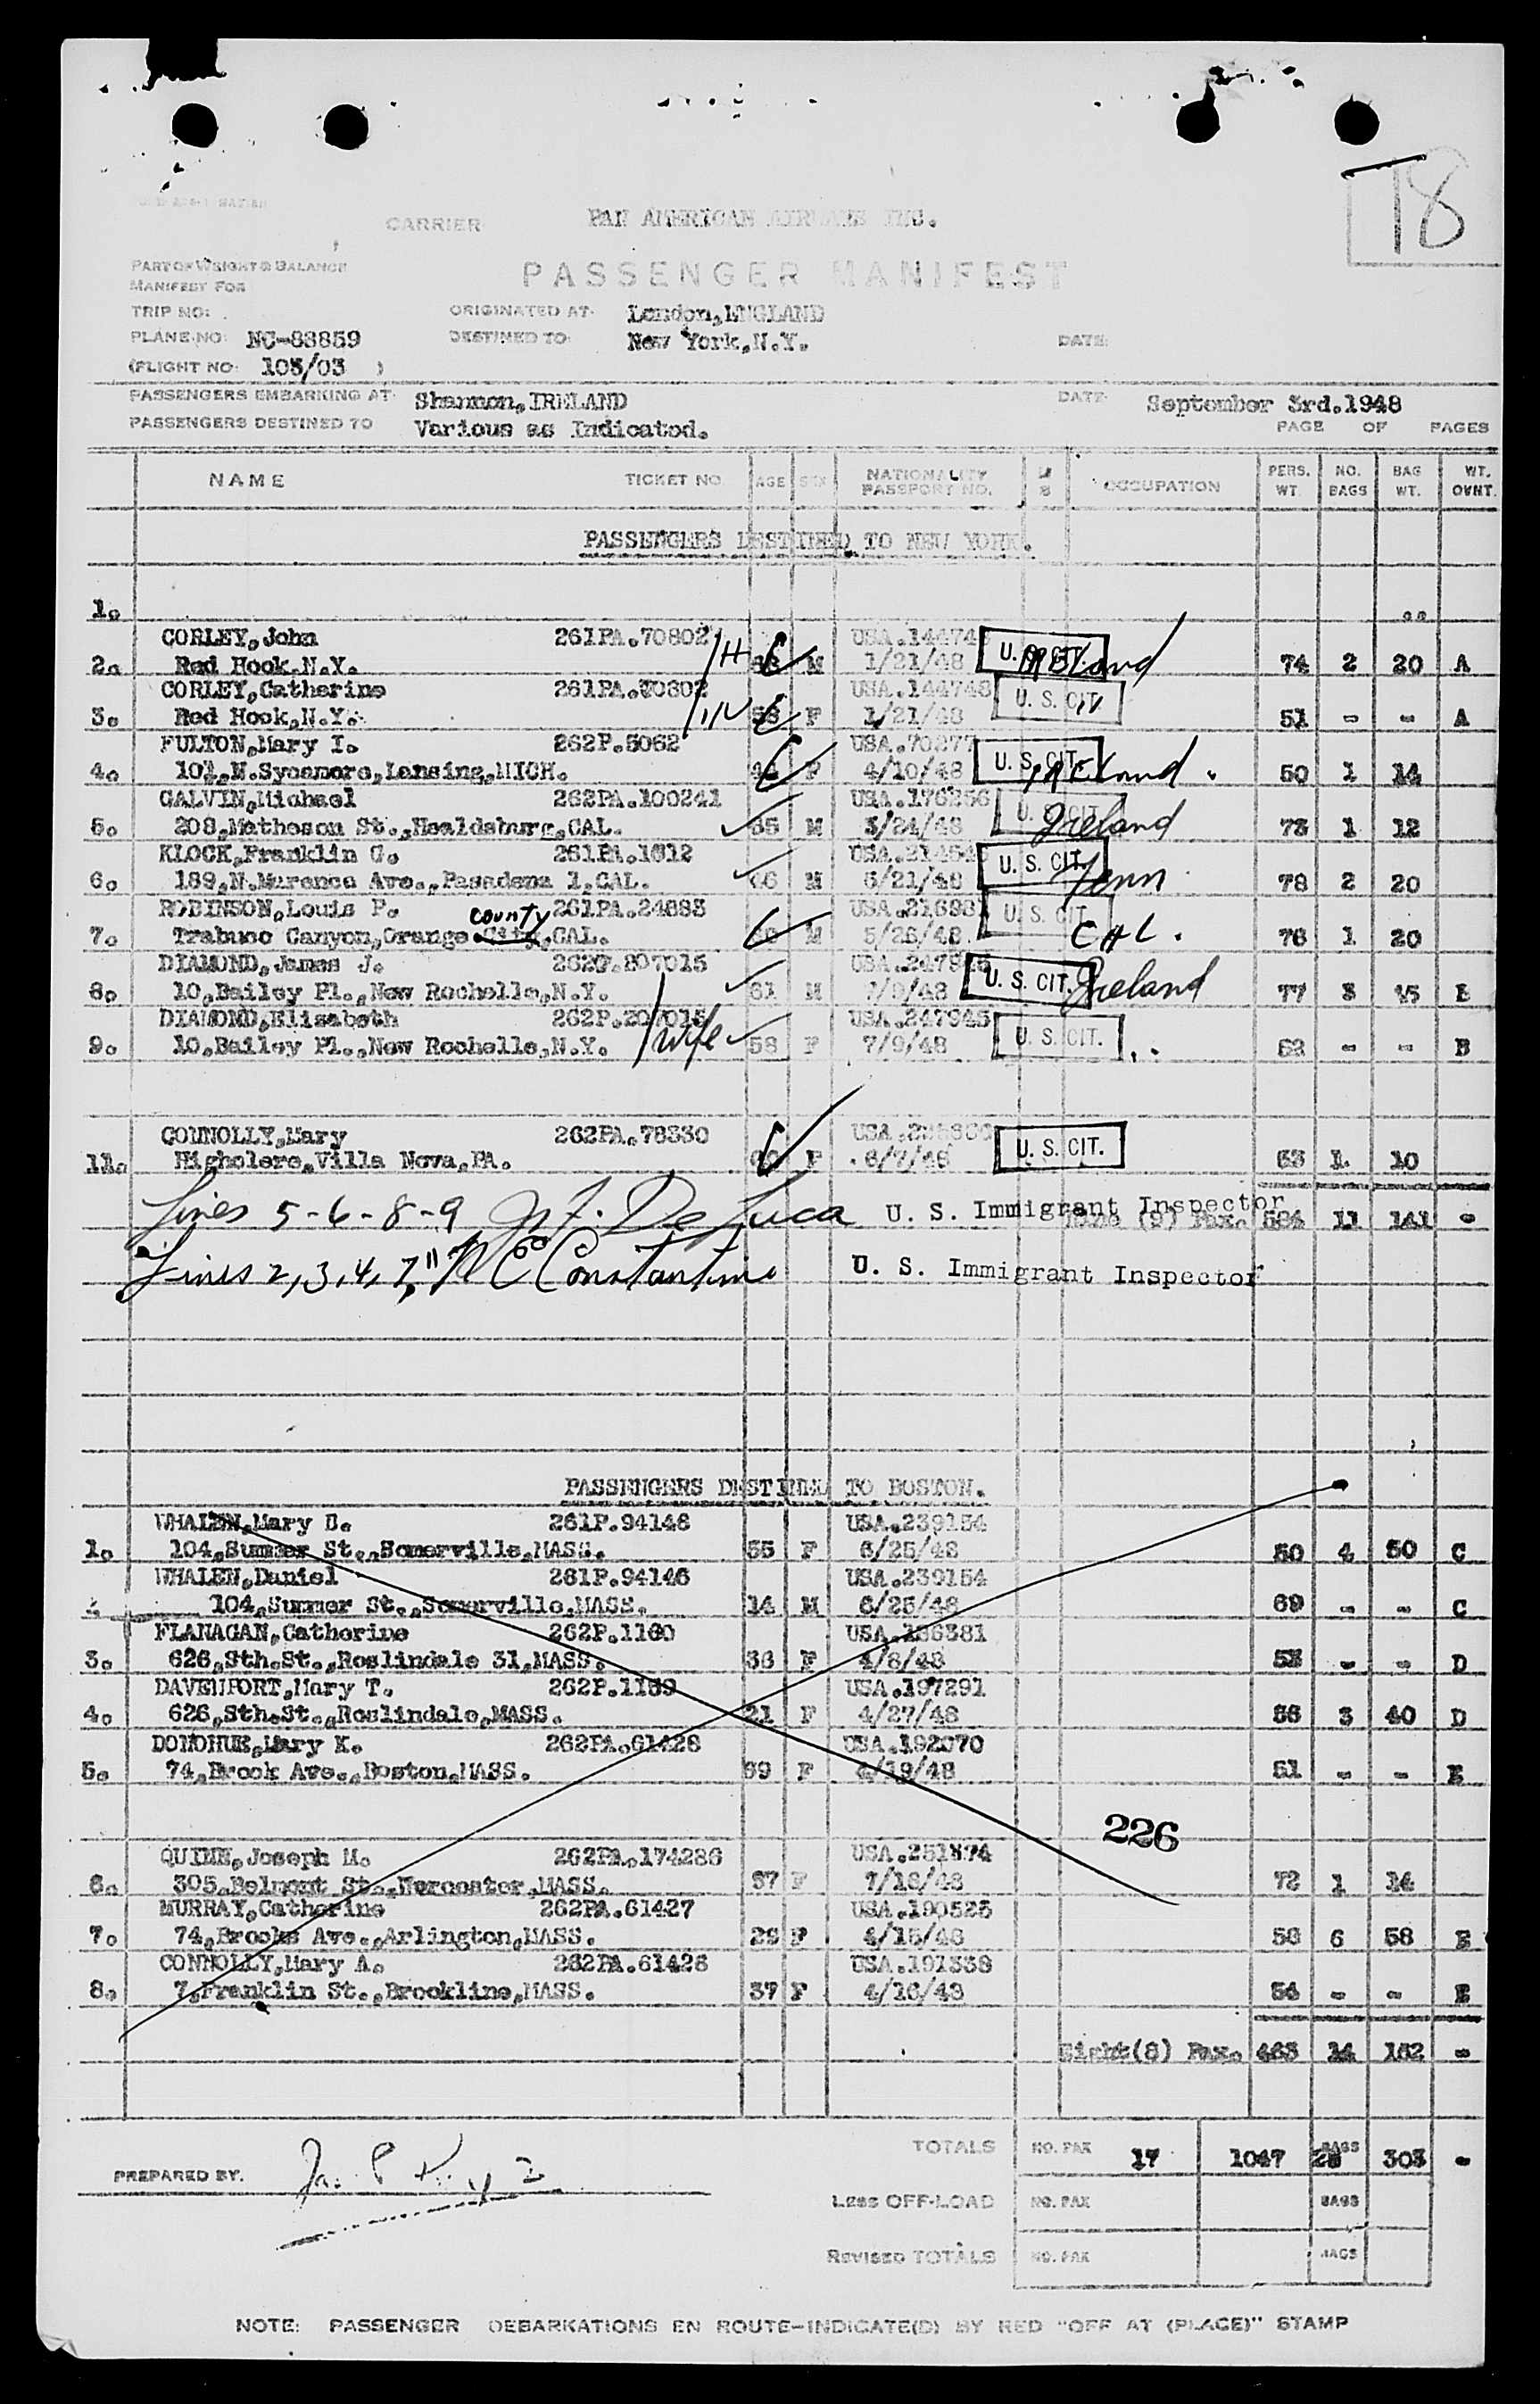 18
CARRIER PAN AMERICAN AIRWAYS INC.
PART OF WEIGHT & BALANCE
MANIFEST FOR
PASSENGER MANIFEST
TRIP NO: ORIGINATED AT London,ENGLAND
PLANE NO: NC-88859 DESTINED TO New York,N.Y. DATE:
(FLIGHT NO: 103/03 )
PASSENGERS EMBARKING AT Shannon,IRELAND DATE September 3rd.1948
PASSENGERS DESTINED TO Various as Indicated. PAGE OF PAGES
NAME TICKET NO. AGE SEX NATIONALITY PASSPORT NO. OCCUPATION PERS. WT. NO. BAGS BAG WT. WT. OVNT.
PASSENGERS DESTINED TO NEW YORK.
1.
CORLEY,John 261PA.70802 USA.14474
2. Red Hook.N.Y. H M 1/21/48 U. S. CIT. Ireland 74 2 20 A
CORLEY,Catherine 261PA.70802 USA.144748
3. Red Hook,N.Y. W 53 F 1/21/48 U. S. CIT. 51 - - A
FULTON,Mary I. 262P.5062 USA.70277
4. 10½,N.Sycamore,Lansing,MICH. F 4/10/48 U. S. CIT. Ireland. 50 1 14
GALVIN,Michael 262PA.100241 USA.176256
5. 208,Matheson St.,Healdsburg,CAL. 65 M 3/24/48 U. S. CIT. Ireland 73 1 12
KLOCK,Franklin G. 261PA.1612 USA.214545
6. 189,N.Marengo Ave.,Pasadena 1,CAL. 46 M 5/21/48 U. S. CIT. Tenn 78 2 20
ROBINSON,Louis P. 261PA.24883 USA.21698
7. Trabuco Canyon,Orange City,CAL. County M 5/26/48. U. S. CIT. CAL. 76 1 20
DIAMOND,James J. 262P.207015 USA.247945
8. 10,Bailey Pl.,New Rochelle,N.Y. 61 M 7/9/48 U. S. CIT. Ireland 77 3 45 B
DIAMOND,Elizabeth 262P.207015 USA.247945
9. 10.Bailey Pl.,New Rochelle,N.Y. Wife 58 F 7/9/48 U. S. CIT. 52 - - B
CONNOLLY,Mary 262PA.78330
11. Higholere,Villa Nova,PA. 60 F 6/7/48 U. S. CIT. 53 1 10
Lines 5-6-8-9 Jos F. De Luca U. S. Immigrant Inspector Nine (9) Pax. 584 11 141 -
Lines 2,3,4,7,11 N E Constantine U. S. Immigrant Inspector
PASSENGERS DESTINED TO BOSTON.
WHALEN,Mary D. 261P.94146 USA.239154
1. 104,Summer St.,Somerville,MASS. 35 F 6/25/48 50 4 50 C
WHALEN,Daniel 261P.94146 USA.239154
104,Summer St.,Somerville,MASS. 14 M 6/25/48 69 - - C
FLANAGAN,Catherine 262P.1160 USA.186381
3. 626,Sth.St.,Roslindale 31,MASS. 36 F 4/8/48 53 - - D
DAVENPORT,Mary T. 262P.1159 USA.197291
4. 626,Sth.St.,Roslindale,MASS. 21 F 4/27/48 56 3 40 D
DONOHUE,Mary K. 262PA.61428 USA.192070
5. 74,Brook Ave.,Boston,MASS. 69 F 4/19/48 51 - - E
226
QUINN,Joseph M. 262PA.174286 USA.251874
6. 305,Belmont St.,Worcester,MASS. 37 F 7/16/48 72 1 14
MURRAY,Catherine 262PA.61427 USA.190525
7. 74,Brooks Ave.,Arlington,MASS. 26 F 4/15/48 58 6 58 E
CONNOLLY,Mary A. 262PA.61426 USA.191338
8. 7,Franklin St.,Brookline,MASS. 37 F 4/16/48 54 - - E
Eight(8) Pax. 463 14 162 -
TOTALS NO. PAX 17 1047 BAGS 25 303 -
PREPARED BY.
Less OFF-LOAD NO. PAX BAGS
Revised TOTALS NO. PAX BAGS
NOTE: PASSENGER DEBARKATIONS EN ROUTE-INDICATE(D) BY RED "OFF AT (PLACE)" STAMP